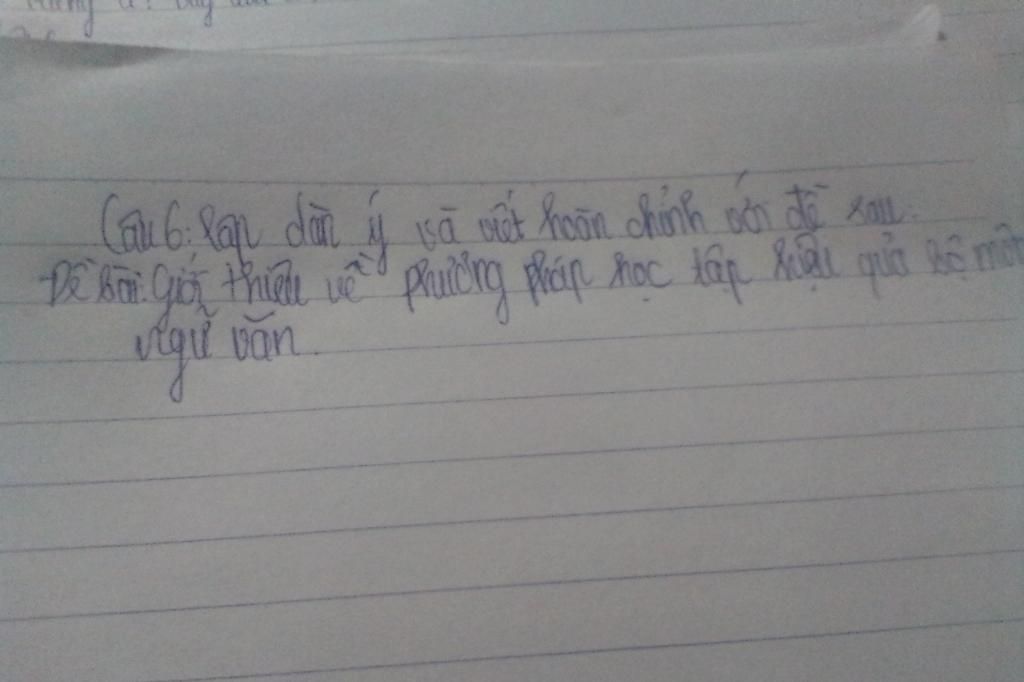 Câu 6: Lập dàn ý và viết hoàn chỉnh với đề sau:
Đề bài: Giới thiệu về phương pháp học tập hiệu quả bộ môn
ngữ văn.